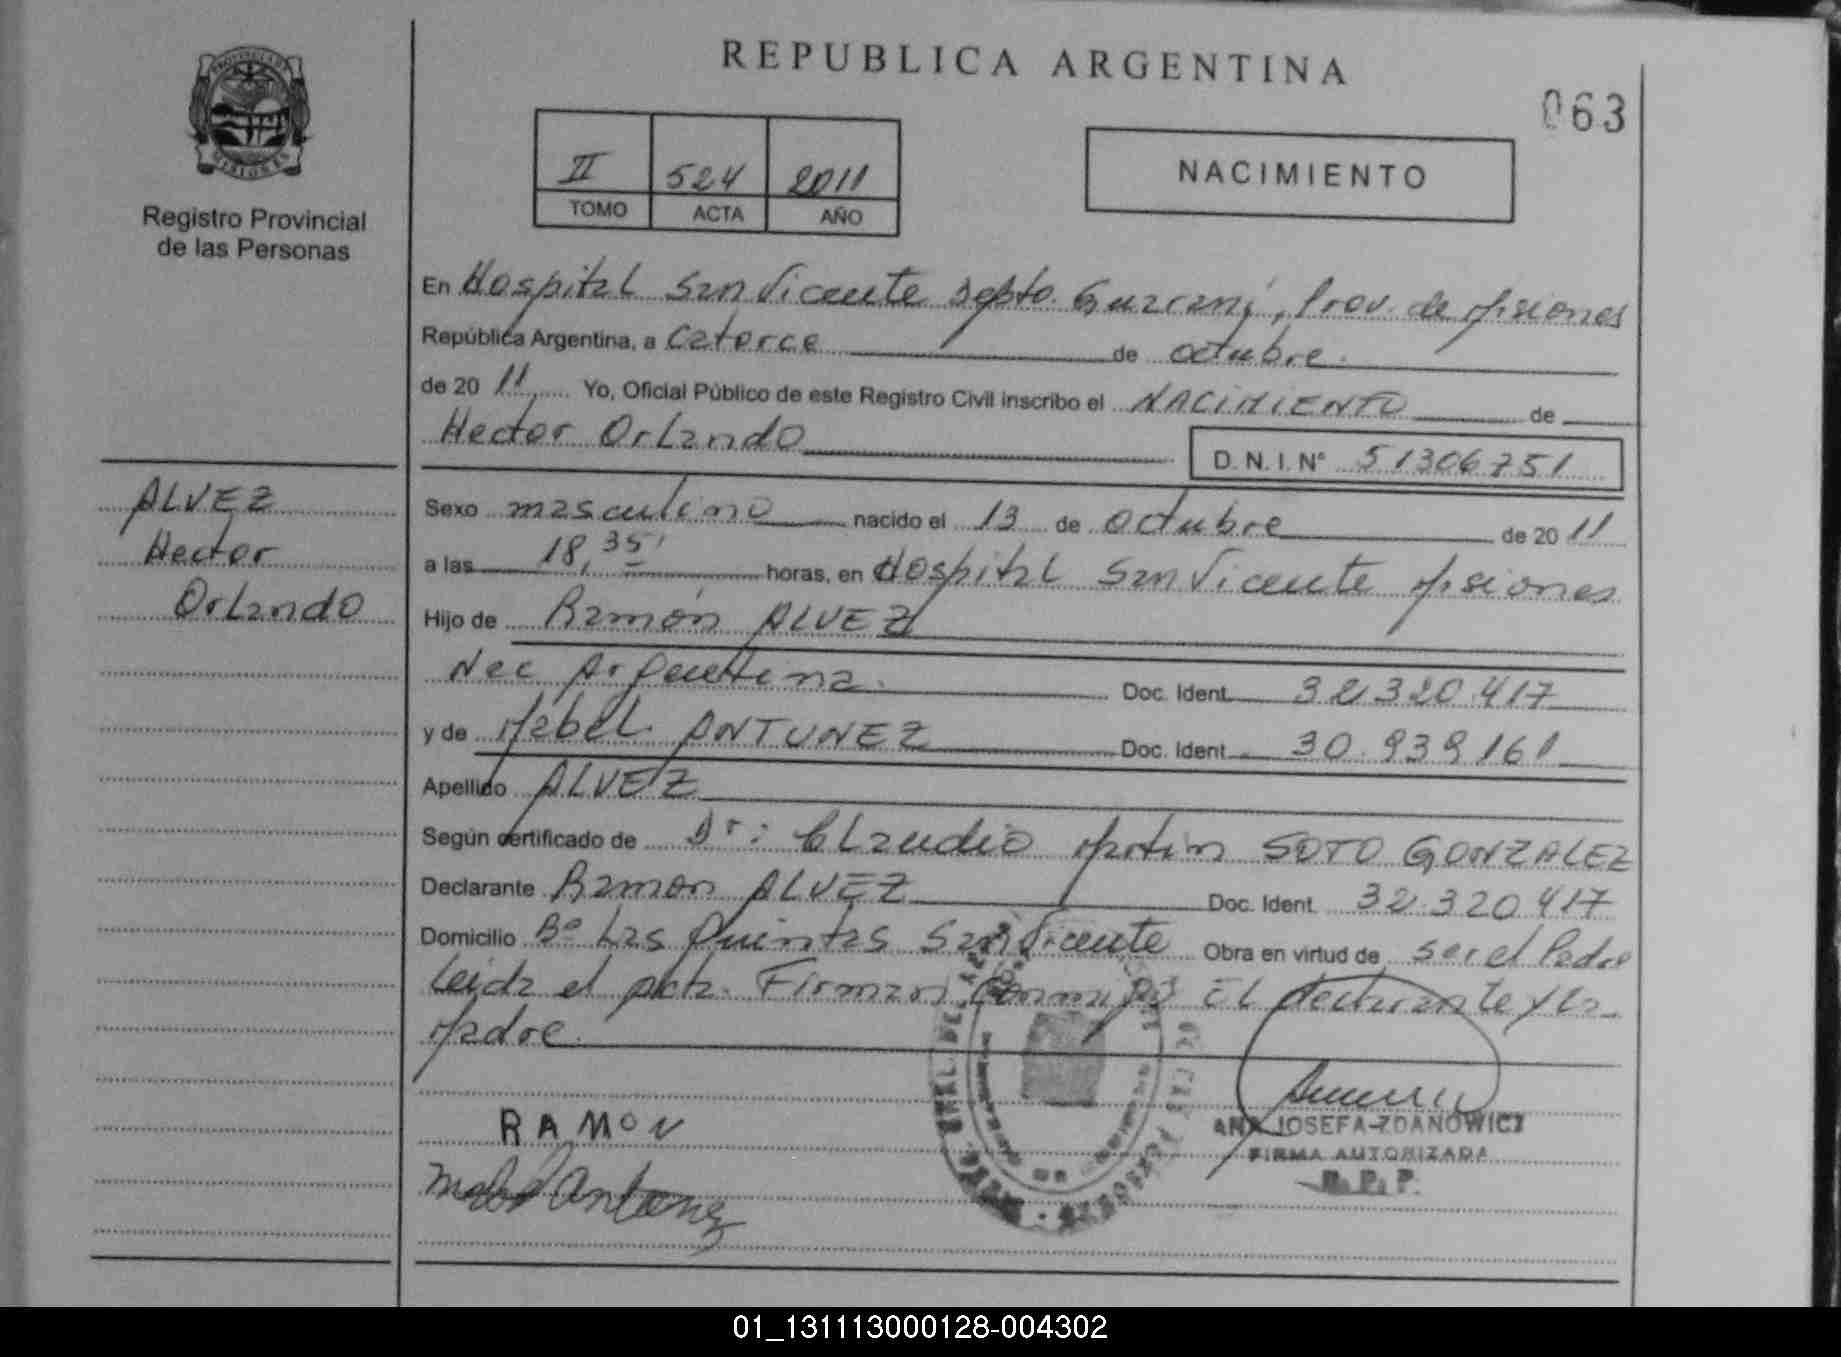 REPUBLICA ARGENTINA
063
PROVINCIA DE
MISIONES
Registro Provincial
de las Personas
II 524 2011
TOMO ACTA AÑO
NACIMIENTO
En Hospital San Vicente Depto. Guaraní, Prov. de Misiones
República Argentina, a Catorce de octubre.
de 20 11 Yo, Oficial Público de este Registro Civil inscribo el NACIMIENTO de
Hector Orlando
D. N. I. N° 51306751
ALVEZ
Hector
Orlando
Sexo masculino nacido el 13 de octubre de 20 11
a las 18,35' horas, en Hospital San Vicente Misiones
Hijo de Ramón ALVEZ
Nac Argentina. Doc. Ident. 32.320.417
y de Mabel ANTUNEZ Doc. Ident. 30.939.161
Apellido ALVEZ
Según certificado de Dr: Claudio Martin SOTO GONZALEZ
Declarante Ramon ALVEZ Doc. Ident. 32.320.417
Domicilio B° Las Quintas San Vicente Obra en virtud de ser el Padre
Leida el acta. Firman conmigo EL declarante y la
Madre.
RAMON
Mabel Antunez
ANA JOSEFA ZDANOWICZ
FIRMA AUTORIZADA
R. P. P.
01_131113000128-004302